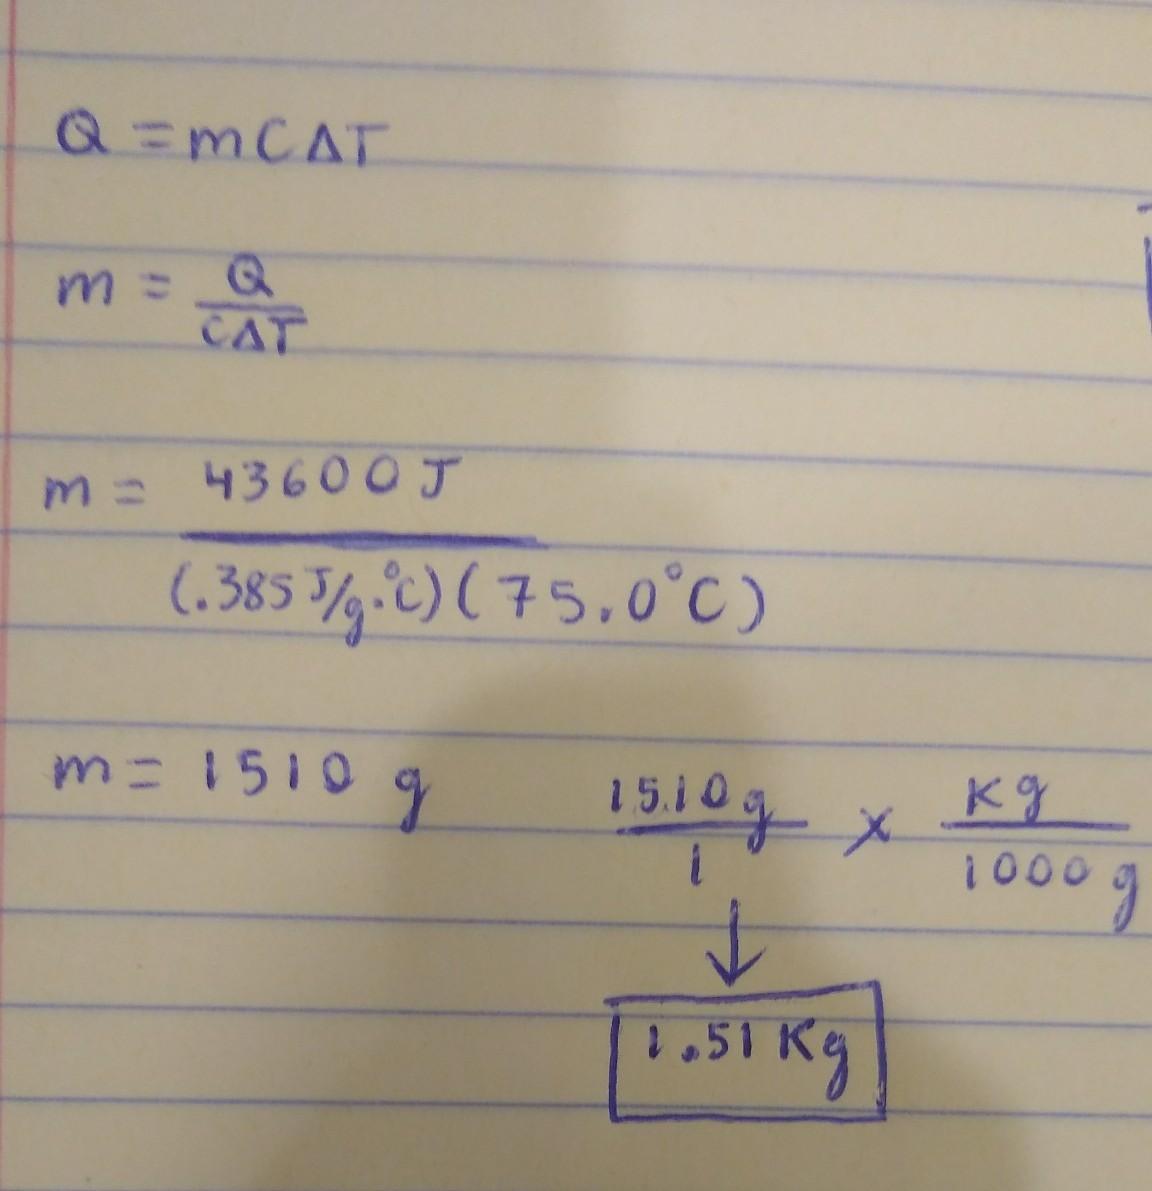 Q = mCΔT
m = Q
CΔT
m = 43600 J
(.385 J/g·°C)(75.0°C)
m = 1510 g
1510 g × Kg
1 1000 g
↓
1.51 Kg